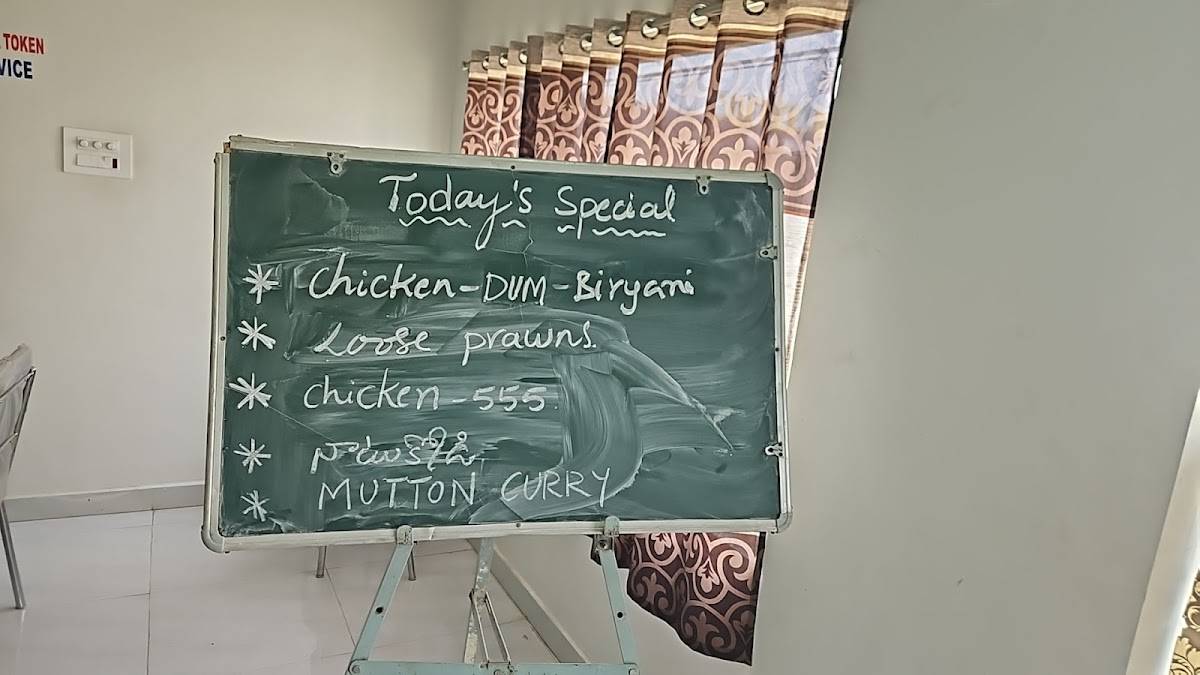 TOKEN
VICE
Today's Special
* Chicken-DUM-Biryani
* Loose prawns.
* chicken-555.
*
* MUTTON CURRY